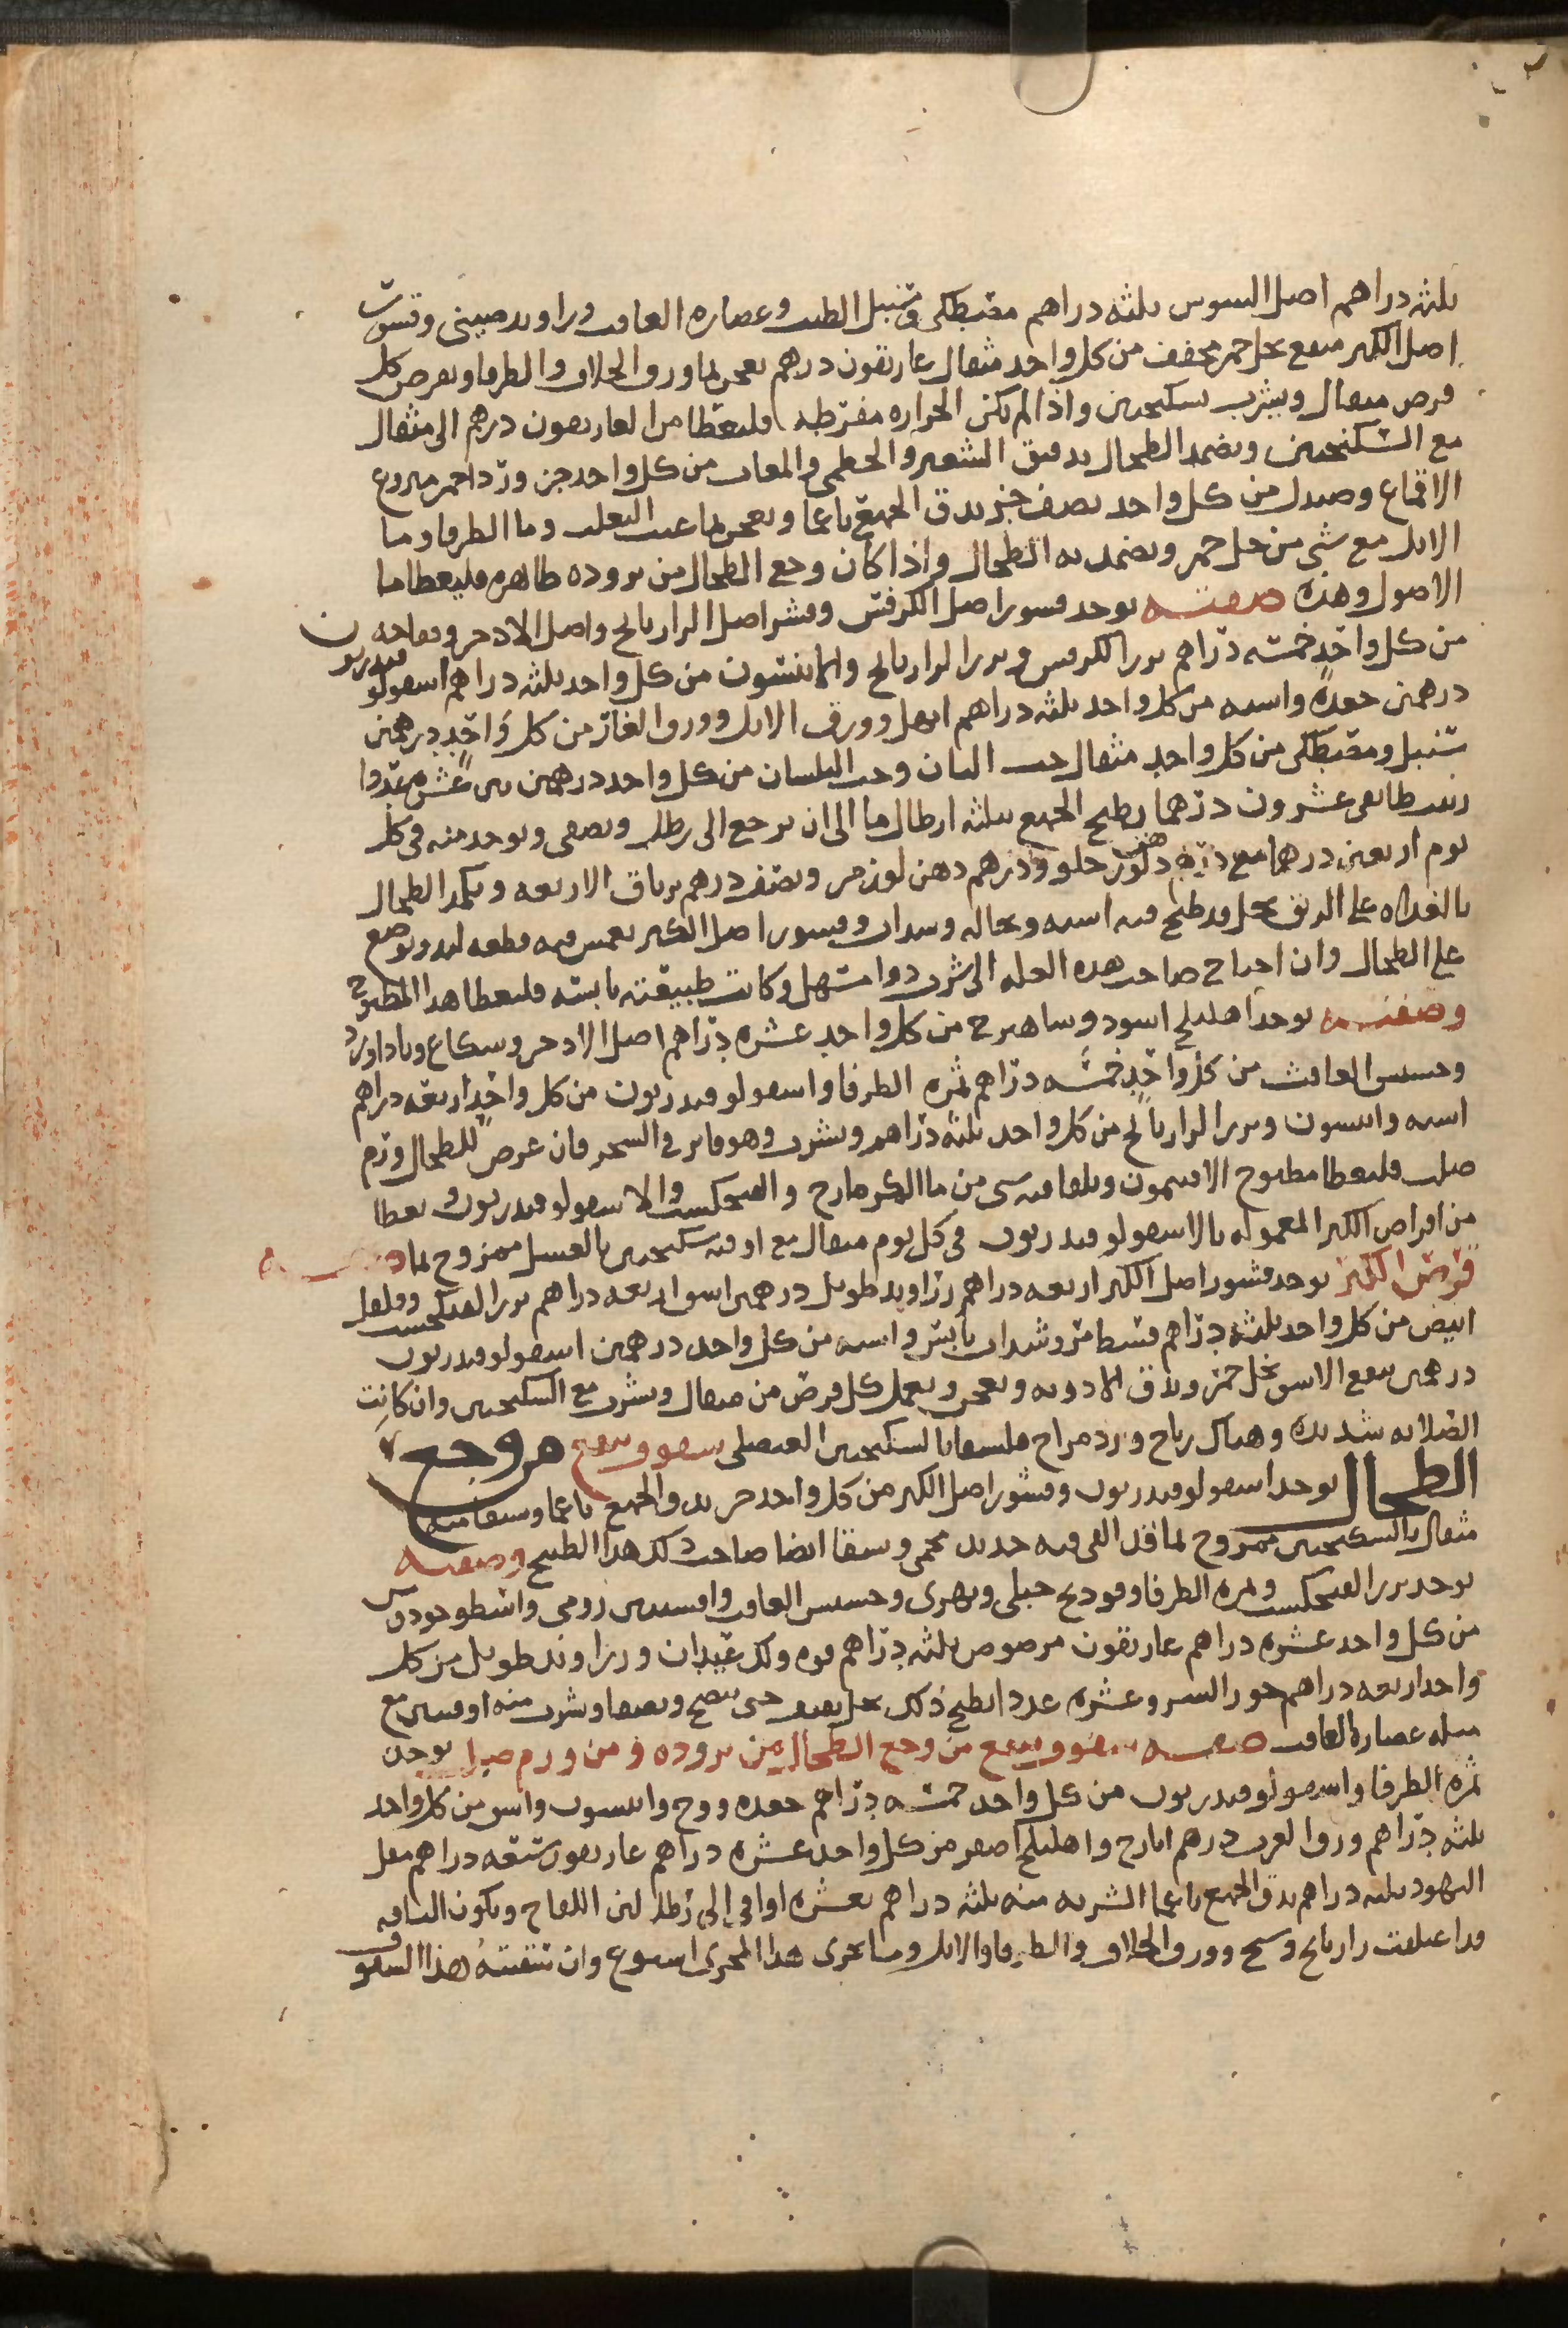 ثلثه دراهم اصل السوس ثلثه دراهم مصطكى وسنبل الطيب وعصاره الغافت وراوند صينى وقشور
اصل الكبر منقع بخل خمر مجفف من كل واحد مثقال غاريقون درهم يعجن بما ورق الخلاف والطرفا ويقرص كل
قرص مثقال ويشرب بسكنجبين واذا لم تكن الحراره مفرطه فليعطا من الغاريقون درهم الى مثقال
مع السكنجبين ويضمد الطحال بدقيق الشعير والخطمى والمغاث من كل واحد جزو ورد احمر منزوع
الاقماع وصندل من كل واحد نصف جز يدق الجميع ناعما ويعجن بما عنب الثعلب وما الطرفا وما
الاثل مع شى من خل خمر ويضمد به الطحال واذا كان وجع الطحال من بروده ظاهره فليعطا ما
الاصول وهذه صفته يوخد قشور اصل الكرفس وقشر اصل الرازيانج واصل الادخر وفقاحه
من كل واحد خمسه دراهم بزر الكرفس وبزر الرازيانج والانيسون من كل واحد ثلثه دراهم اسقولوقندريون
درهمين جعده واسه من كل واحد ثلثه دراهم ابهل وورق الاثل وورق الغار من كل واحد درهمين
سنبل ومصطكى من كل واحد مثقال حب البان وحب البلسان من كل واحد درهمين تين عشره عددا
زبيب طايفى عشرون درهما يطبخ الجميع بثلثه ارطال ما الى ان يرجع الى رطل ويصفى ويوخد منه فى كل
يوم اربعين درهما مع دهن لوز حلو ودرهم دهن لوز مر ونصف درهم ترياق الاربعه ويكمد الطحال
بالغداه على الريق بخل قد طبخ فيه اسه ونخاله وسداب وقشور اصل الكبر يغمس فيه قطعه لبد ويوضع
على الطحال وان احتاج صاحب هده العله الى شرب دوا مسهل وكانت طبيعته يابسه فليعطا هدا المطبوخ
وصفته يوخد اهليلج اسود وشاهترج من كل واحد عشره دراهم اصل الادخر وشكاع وباداورد
وحشيش الغافث من كل واحد خمسه دراهم ثمره الطرفا واسقولوقندريون من كل واحد اربعه دراهم
اسه وانيسون وبزر الرازيانج من كل واحد ثلثه دراهم ويشرب وهو فاتر فى السحر فان عرض للطحال ورم
صلب فليعطا مطبوخ الافتيمون ويلقا فيه شى من ما الكزمازج والفنجنكشت والاسقولوقندريون ويعطا
من اقراص الكبر المعموله بالاسقولوقندريون فى كل يوم مثقال مع اوقيه سكنجبين بالعسل ممزوج بما وصفه
قرص الكبر يوخد قشور اصل الكبر اربعه دراهم زراوند طويل درهمين اشق اربعه دراهم بزر الفنجنكشت وفلفل
ابيض من كل واحد ثلثه دراهم قسط مر وسداب يابس واسه من كل واحد درهمين اسقولوقندريون
درهمين ينقع الاشق بخل خمر وتدق الادويه وتعجن ويعمل كل قرص من مثقال ويشرب مع السكنجبين وان كانت
الصلابه شديده وهناك رياح وبرد مزاج فليسقا بالسكنجبين العنصلى سفوف ينفع من وجع
الطحال يوخد اسقولوقندريون وقشور اصل الكبر من كل واحد جز يدق الجميع ناعما ويسقا منه
مثقال بالسكنجبين ممزوج بما قد القى فيه حديد محمى ويسقا ايضا صاحب ذلك هدا الطبيخ وصفته
يوخد بزر الفنجنكشت وثمره الطرفا وفودنج جبلى ونهرى وحشيش الغافت وافسنتين رومى واسطوخودوس
من كل واحد عشره دراهم غاريقون مرضوض ثلثه دراهم فوه ولك عيدان وزراوند طويل من كل
واحد اربعه دراهم جوز السرو عشره عددا يطبخ ذلك بخل ثقيف حتى ينضج ويصفا ويشرب منه اوقيتين مع
مثله عصاره الغافت صفه سفوف ينفع من وجع الطحال من بروده ومن ورم صلب يوخد
ثمره الطرفا واسقولوقندريون من كل واحد خمسه دراهم جعده ووج وانيسون واشق من كل واحد
ثلثه دراهم ورق الغرب درهم ايارج واهليلج اصفر من كل واحد عشره دراهم غاريقون سبعه دراهم مقل
اليهود ثلثه دراهم يدق الجميع ناعما الشربه منه ثلثه دراهم بعشره اواقى الى رطل لبن اللقاح ويكون الناقه
قد اعتلفت رازيانج وشيح وورق الخلاف والطرفا والاثل وما يجرى هدا المجرى اسبوع وان سقيته هذا السفوف